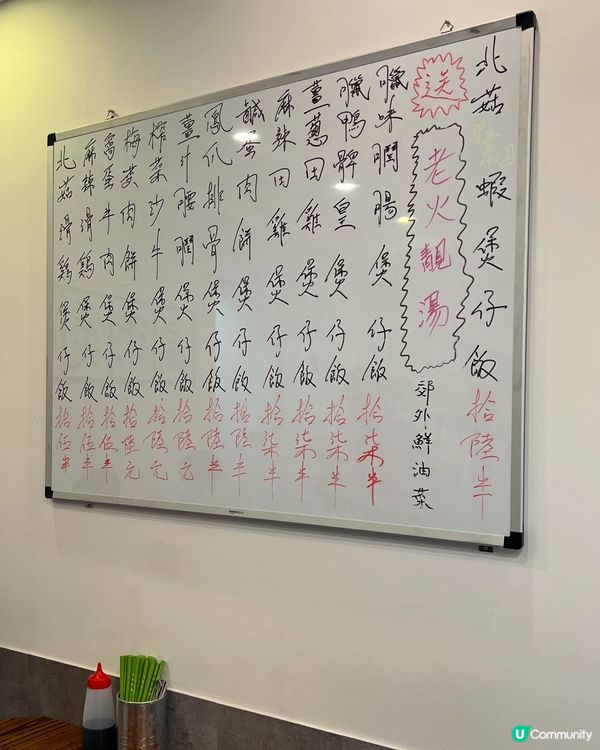 北菇『素』蝦煲仔飯拾陸半
送
老火靚湯
郊外鮮油菜
臘味膶腸煲仔飯拾柒半
臘鴨髀皇煲仔飯拾柒半
薑蔥田雞煲仔飯拾柒半
麻辣田雞煲仔飯拾柒半
鹹蛋肉餅煲仔飯拾陸半
鳳爪排骨煲仔飯拾陸半
薑汁腰膶煲仔飯拾陸元
榨菜沙牛煲仔飯拾陸元
梅菜肉餅煲仔飯拾陸元
窩蛋牛肉煲仔飯拾伍半
麻辣滑鷄煲仔飯拾伍半
北菇滑鷄煲仔飯拾伍半
U Community